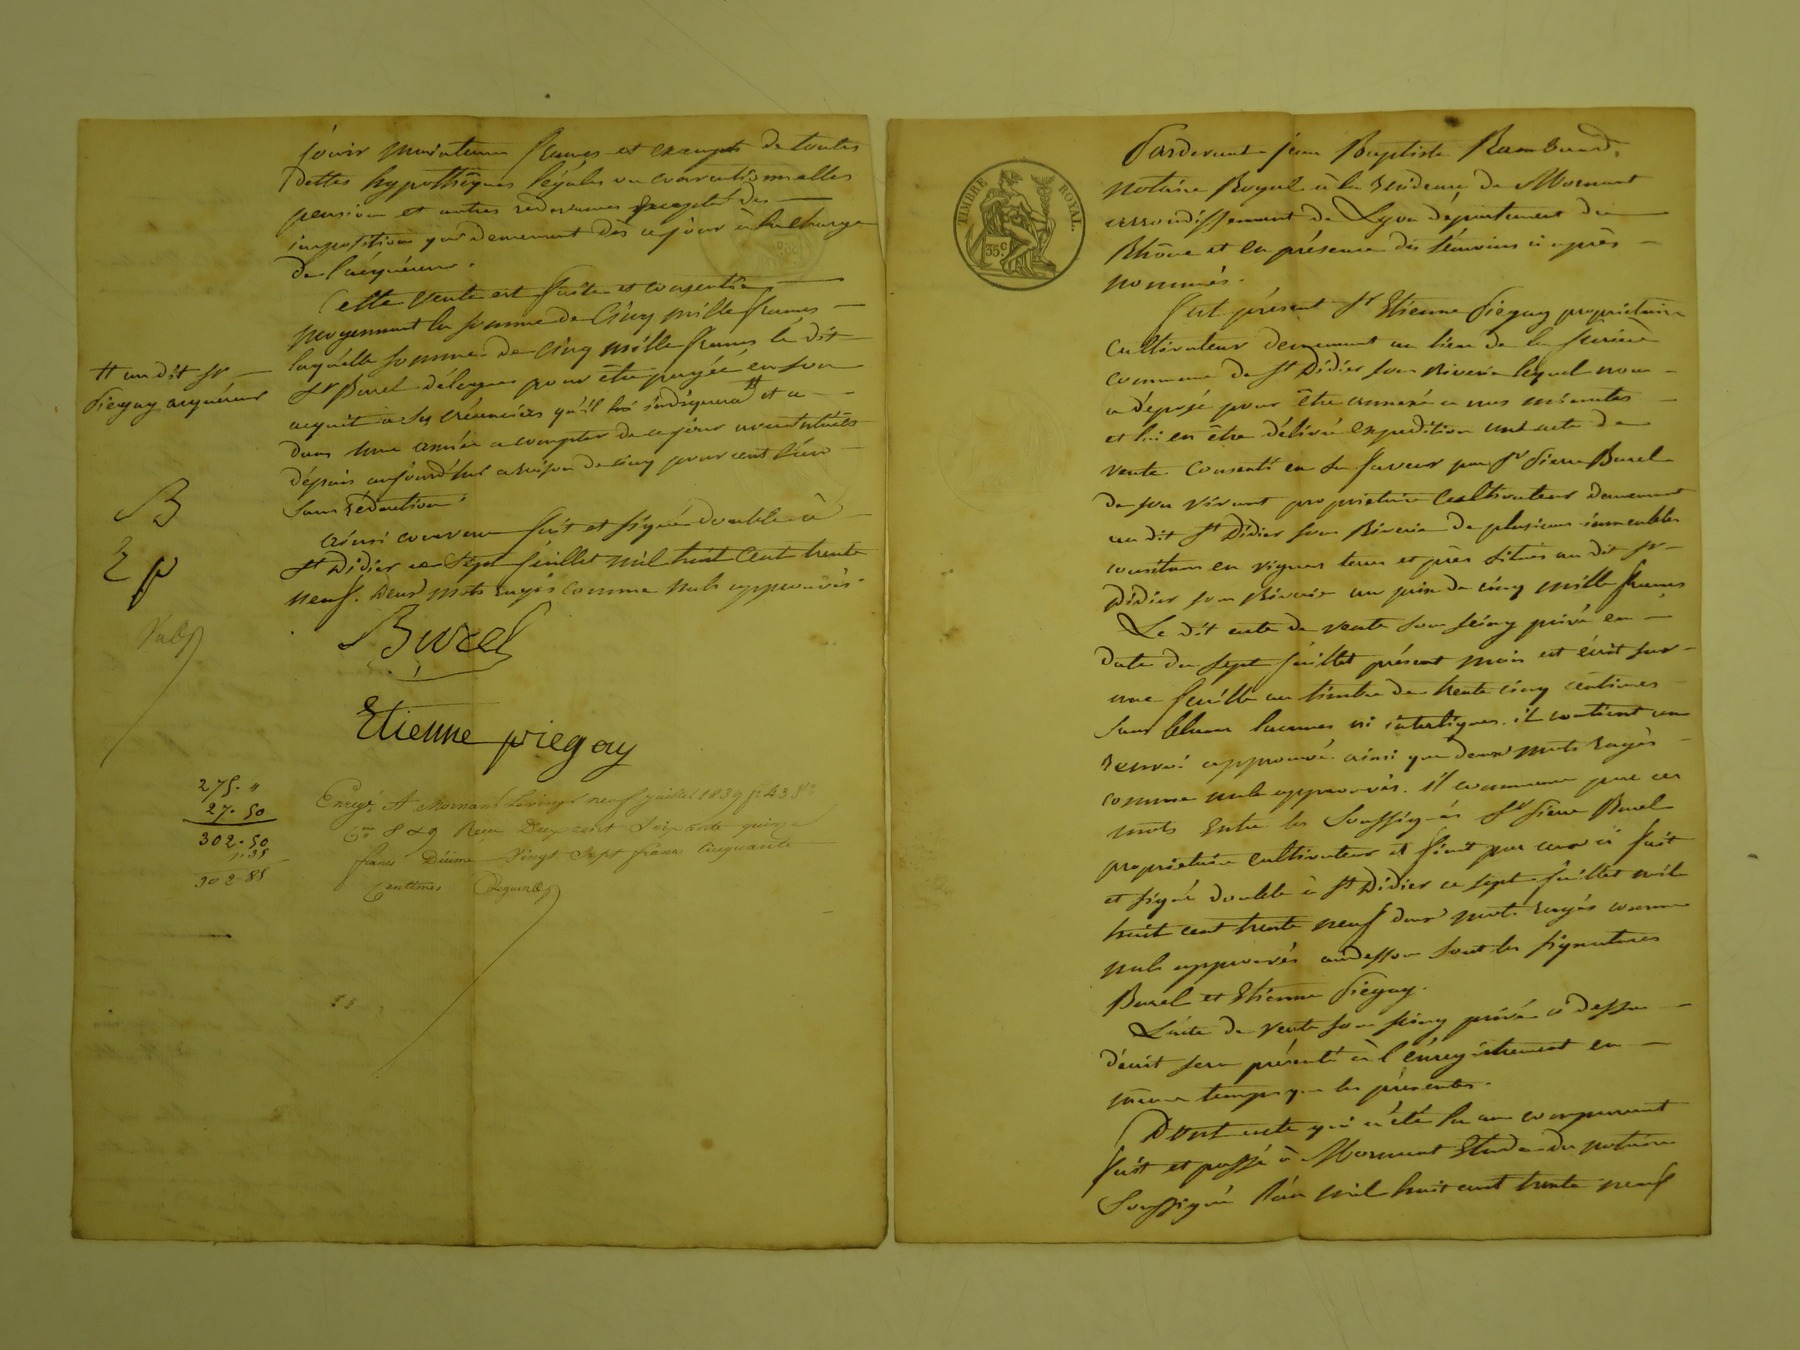 jouir maintenu francs et exempts de toutes
dettes hypothèques légales ou conventionnelles
pension et autres redevances excepté des
impositions qui demeurent dès ce jour à la charge
de l'acquéreur.
Cette vente est faite et consentie
moyennant la somme de Cinq mille francs
laquelle somme de cinq mille francs le dit
Sr Burel délegue pour être payée en son
acquit a ses créanciers qu'il lui indiquera # et a
dans une année a compter de ce jour avec intérêts
dépuis aujourd'hui a raison de cinq pour cent l'an
sans rédaction.
# au dit Sr
Piegay acquéreur
B
E p
ainsi convenu fait et signé double à
St Didier ce Sept juillet mil huit cent trente
neuf. Deux mots rayés comme nuls approuvés.
Burel
Etienne piegay
275. "
27. 50
302. 50
" 35
302 85
Enregé A Mornant Le vingt neuf juillet 1839 fo 43 Ro
Ces 8 & 9 Reçu Deux cent Soixante quinze
francs Décime Vingt Sept francs Cinquante
Centimes
TIMBRE ROYAL.
35 c
Pardevant Jean Baptiste
notaire Royal à la résidence de Mornant
arrondissement de Lyon département du
Rhône et en présence des témoins ci après
nommés.
fut présent Sr Etienne Piegay propriétaire
cultivateur demeurant au lieu de la
commune de St Didier sous Riverie lequel nous
a déposé pour être annexé a nos minutes
et lui en être délivré expédition un acte de
vente consenti en sa faveur par Sr Pierre Burel
de son vivant propriétaire cultivateur demeurant
au dit St Didier sous Riverie de plusieurs immeubles
consistans en vignes terres et près situés au dit St
Didier sous Riverie au prix de cinq mille francs
Le dit acte de vente sous seing privé en
date du sept juillet présent mois est écrit sur
une feuille au timbre de trente cinq centimes
sans blanc lacunes ni interlignes. il contient un
renvoi approuvé ainsi que deux mots rayés
comme nuls approuvés. il commence par ces
mots Entre les Soussignés Sr Pierre Burel
propriétaire cultivateur et finit par ceux ci fait
et signé double à St Didier ce sept juillet mil
huit cent trente neuf deux mots rayés comme
nuls approuvés audessous sont les signatures
Burel et Etienne Piegay.
L'acte de vente sous seing privé ci dessus
décrit sera présenté à l'enregistrement en
même temps que les présentes.
Dont acte qui a été lu au comparant
fait et passé à Mornant Etude du notaire
Soussigné l'an mil huit cent trente neuf